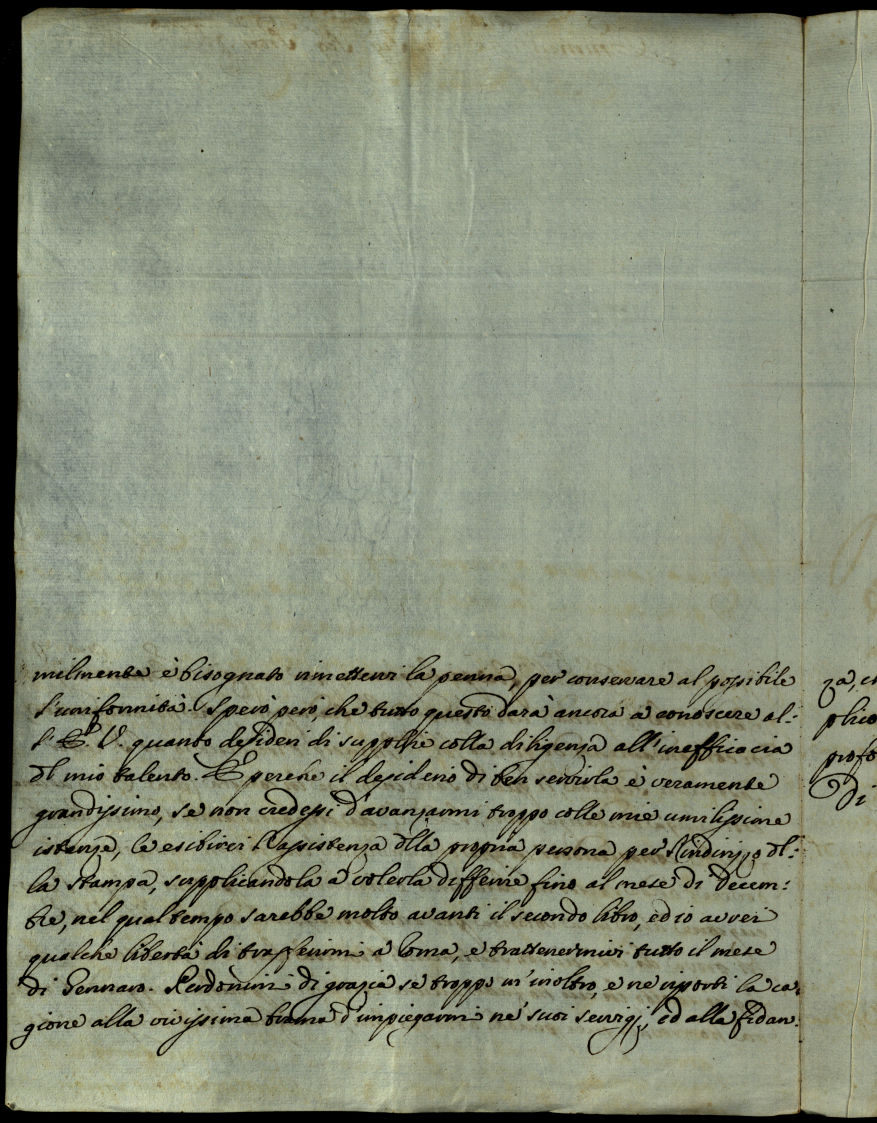 milmente è bisognato rimettervi la penna, per conservare al possibile
l'uniformità. Spero però, che tutto questo darà ancora a conoscere al:
l'E. V. quanto desideri di supplire colla diligenza all'inefficacia
dl mio talento. E perche il desiderio di ben servirla è veramente
grandissimo, se non credessi d'avanzarmi troppo colle mie umilissime
istanze, le esibirei l'assistenza dlla propria persona per l'indirizzo dl:
la stampa, supplicandola à volerla differire fino al mese di Decem:
bre, nel qual tempo sarebbe molto avanti il secondo libro, ed io avrei
qualche libertà di trasferirmi a Roma, e trattenermivi tutto il mese
di Gennaro. Perdonimi di grazia se troppo m'inoltro, e ne riporti la ca:
gione alla vivissima brama d'impiegarmi ne' suoi servigj, ed alla fidan:
za, ch
plico
profo
Di